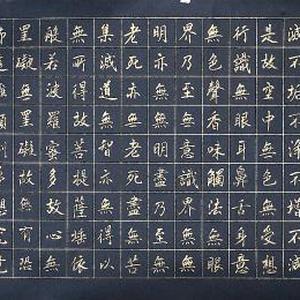 滅不垢不淨不增不減
是故空中無色無受想
行識無眼耳鼻舌身意
無色聲香味觸法無眼
界乃至無意識界無無
明亦無無明盡乃至無
老死亦無老死盡無苦
集滅道無智亦無得以
無所得故菩提薩埵依
般若波羅蜜多故心無
罣礙無罣礙故無有恐
怖遠離顛倒夢想究竟